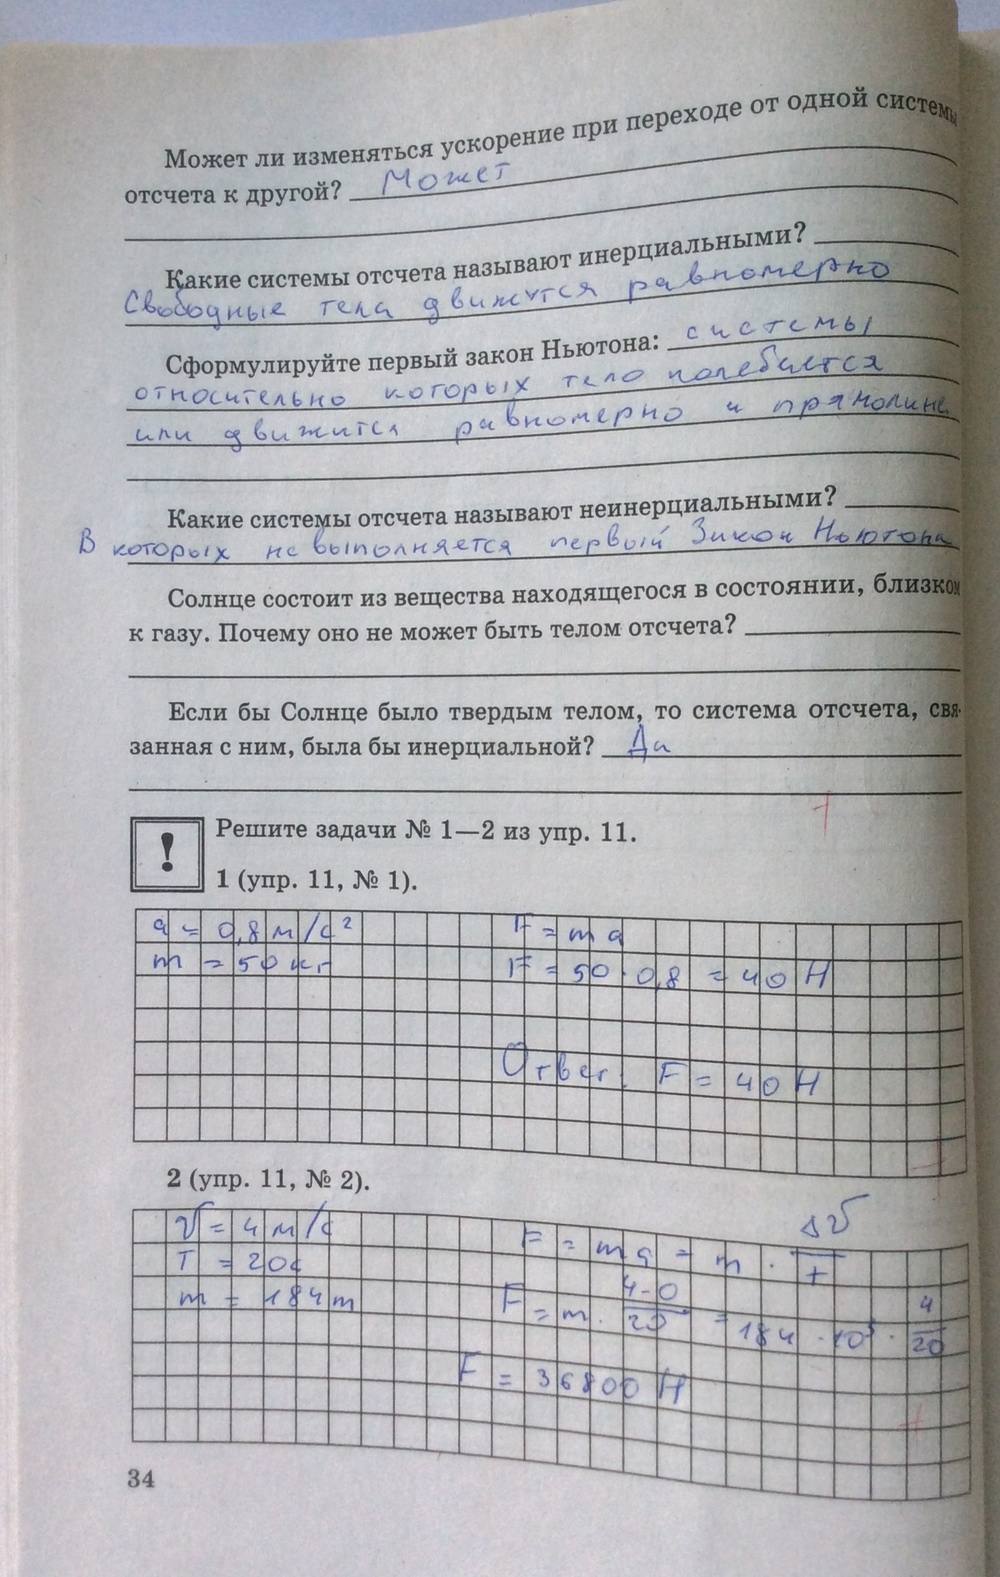 Может ли изменяться ускорение при переходе от одной системы
отсчета к другой? Может
Какие системы отсчета называют инерциальными?
Свободные тела движутся равномерно
Сформулируйте первый закон Ньютона: системы
относительно которых тело
или движится равномерно и прямолине
Какие системы отсчета называют неинерциальными?
В которых не выполняется первый Закон Ньютона
Солнце состоит из вещества находящегося в состоянии, близком
к газу. Почему оно не может быть телом отсчета?
Если бы Солнце было твердым телом, то система отсчета, свя-
занная с ним, была бы инерциальной? Да
! Решите задачи № 1—2 из упр. 11.
1 (упр. 11, № 1).
a = 0,8 м/с² F = ma
m = 50 кг F = 50 · 0,8 = 40 Н
Ответ. F = 40 Н
2 (упр. 11, № 2).
V = 4 м/с F = ma = m · ΔV/t
T = 20с F = m · 4-0/20 = 184 · 10³ · 4/20
m = 184 т
F = 36800 Н
34